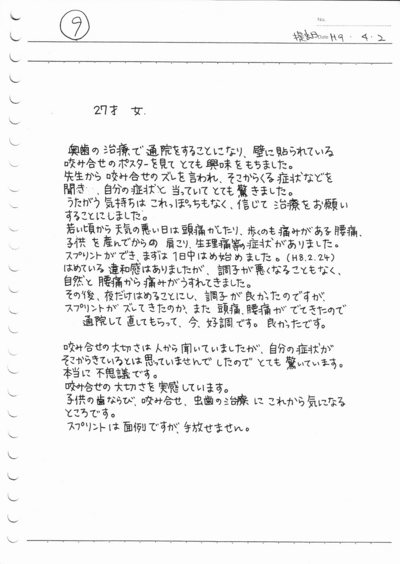 ⑨
No.
H9・4・2
27才 女.
奥歯の治療で通院をすることになり、壁に貼られている
咬み合せのポスターを見てとても興味をもちました。
先生から咬み合せのズレを言われ、そこからくる症状などを
聞き、自分の症状と当っていてとても驚きました。
うたがう気持ちはこれっぽっちもなく、信じて治療をお願い
することにしました。
若い頃から天気の悪い日は頭痛がしたり、歩くのも痛みがある腰痛、
子供を産んでからの肩こり、生理痛等の症状がありました。
スプリントができ、まずは1日中はめ始めました。(H8.2.24)
はめている違和感はありましたが、調子が悪くなることもなく、
自然と腰痛から痛みがうすれてきました。
その後、夜だけはめることにし、調子が良かったのですが、
スプリントがズレてきたのか、また頭痛、腰痛がでてきたので
通院して直してもらって、今、好調です。良かったです。
咬み合せの大切さは人から聞いていましたが、自分の症状が
そこからきているとは思っていませんでしたのでとても驚いています。
本当に不思議です。
咬み合せの大切さを実感しています。
子供の歯ならび、咬み合せ、虫歯の治療にこれから気になる
ところです。
スプリントは面倒ですが、手放せません。